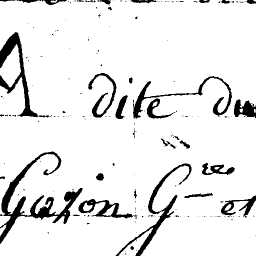 A dite du
Gazon G^re et